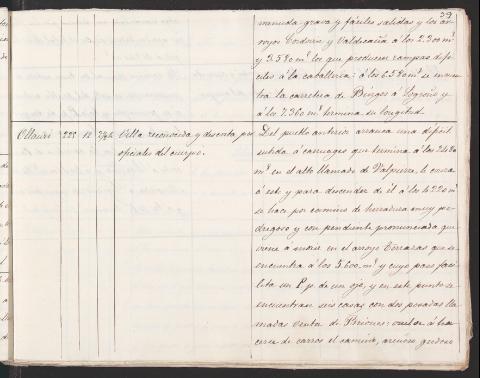 39
menuda grava y fáciles salidas y los ar-
royos Cordorra y Valdicaña á los 2.300 m.s
y 3.580 m.s los que producen rampas difi-
ciles á la caballeria: á los 6.580 m.s se encuen-
tra la carretera de Búrgos á Logroño y
á los 7.360 m.s termina su longitud.
Ollauri 222 12 746 Villa reconocida y descrita por
oficiales del cuerpo.
Del pueblo anterior arranca una dificil
subida á carruages que termina á los 2480
m.s en el alto llamado de Valpierre, le cruza
á este y para descender de él á los 4220 m.s
se hace por camino de herradura muy pe-
dregoso y con pendiente pronunciada que
viene á morir en el arroyo Terrazas que se
encuentra á los 5.600 m.s y cuyo paso faci-
lita un P.p. de un ojo, y en este punto se
encuentran seis casas con dos posadas lla-
madas venta de Briones: vuelve á ha-
cerse de carros el camino, arenoso gredoso